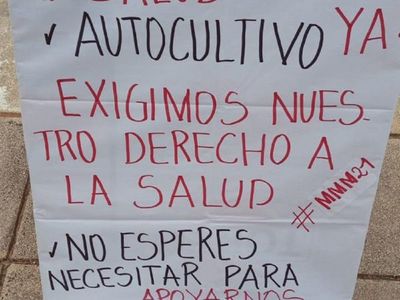 SALUD
✓ AUTOCULTIVO YA
EXIGIMOS NUES-
TRO DERECHO A
LA SALUD
#MMM21
✓ NO ESPERES
NECESITAR PARA
APOYARNOS